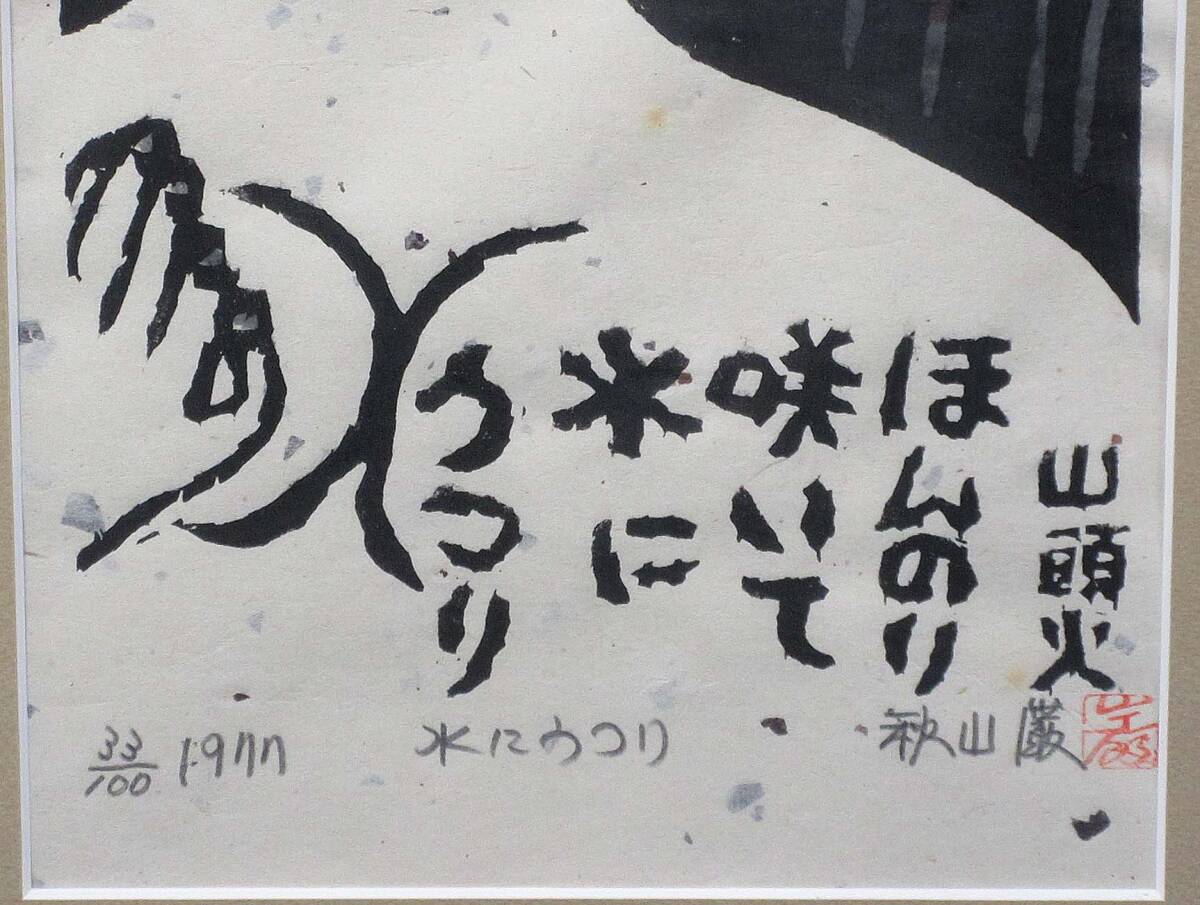 山頭火
ほんのり
咲いて
水に
うつり
33/100 1977
水にうつり
秋山巌